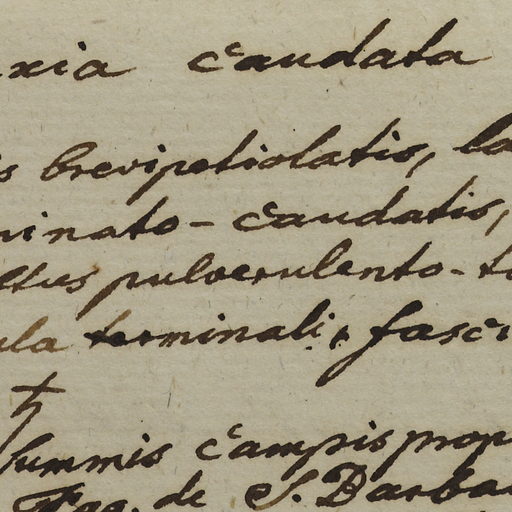 xia caudata
s brevipetiolatis, la
inato-caudatis,
ctus pulverulento-to
ula terminali, fasci
♄
Summis campis prop
Faz. de S. Barba